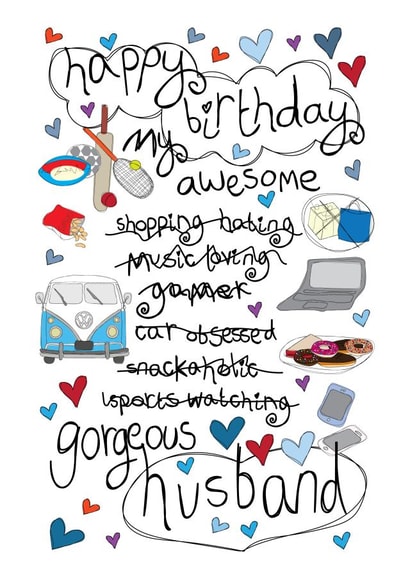 happy
birthday
my
awesome
shopping hating
music loving
gamer
car obsessed
snackaholic
sports watching
gorgeous
husband